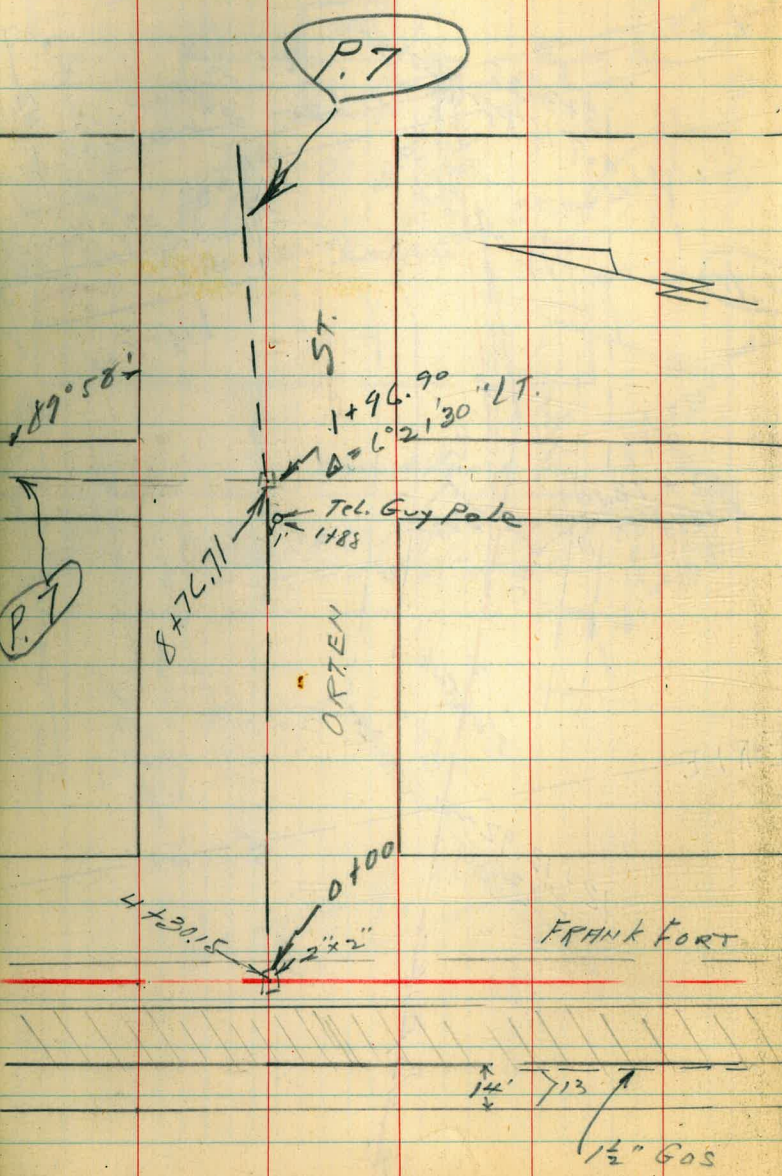 P.7
ST.
89°58'½
1+96.90
Δ = 6°21'30" LT.
Tel. Guy Pole
1+88
1'
8+76.71
P.7
ORTEN
0+00
4+30.15
2"x2"
FRANKFORT
14'
13
1½" GAS